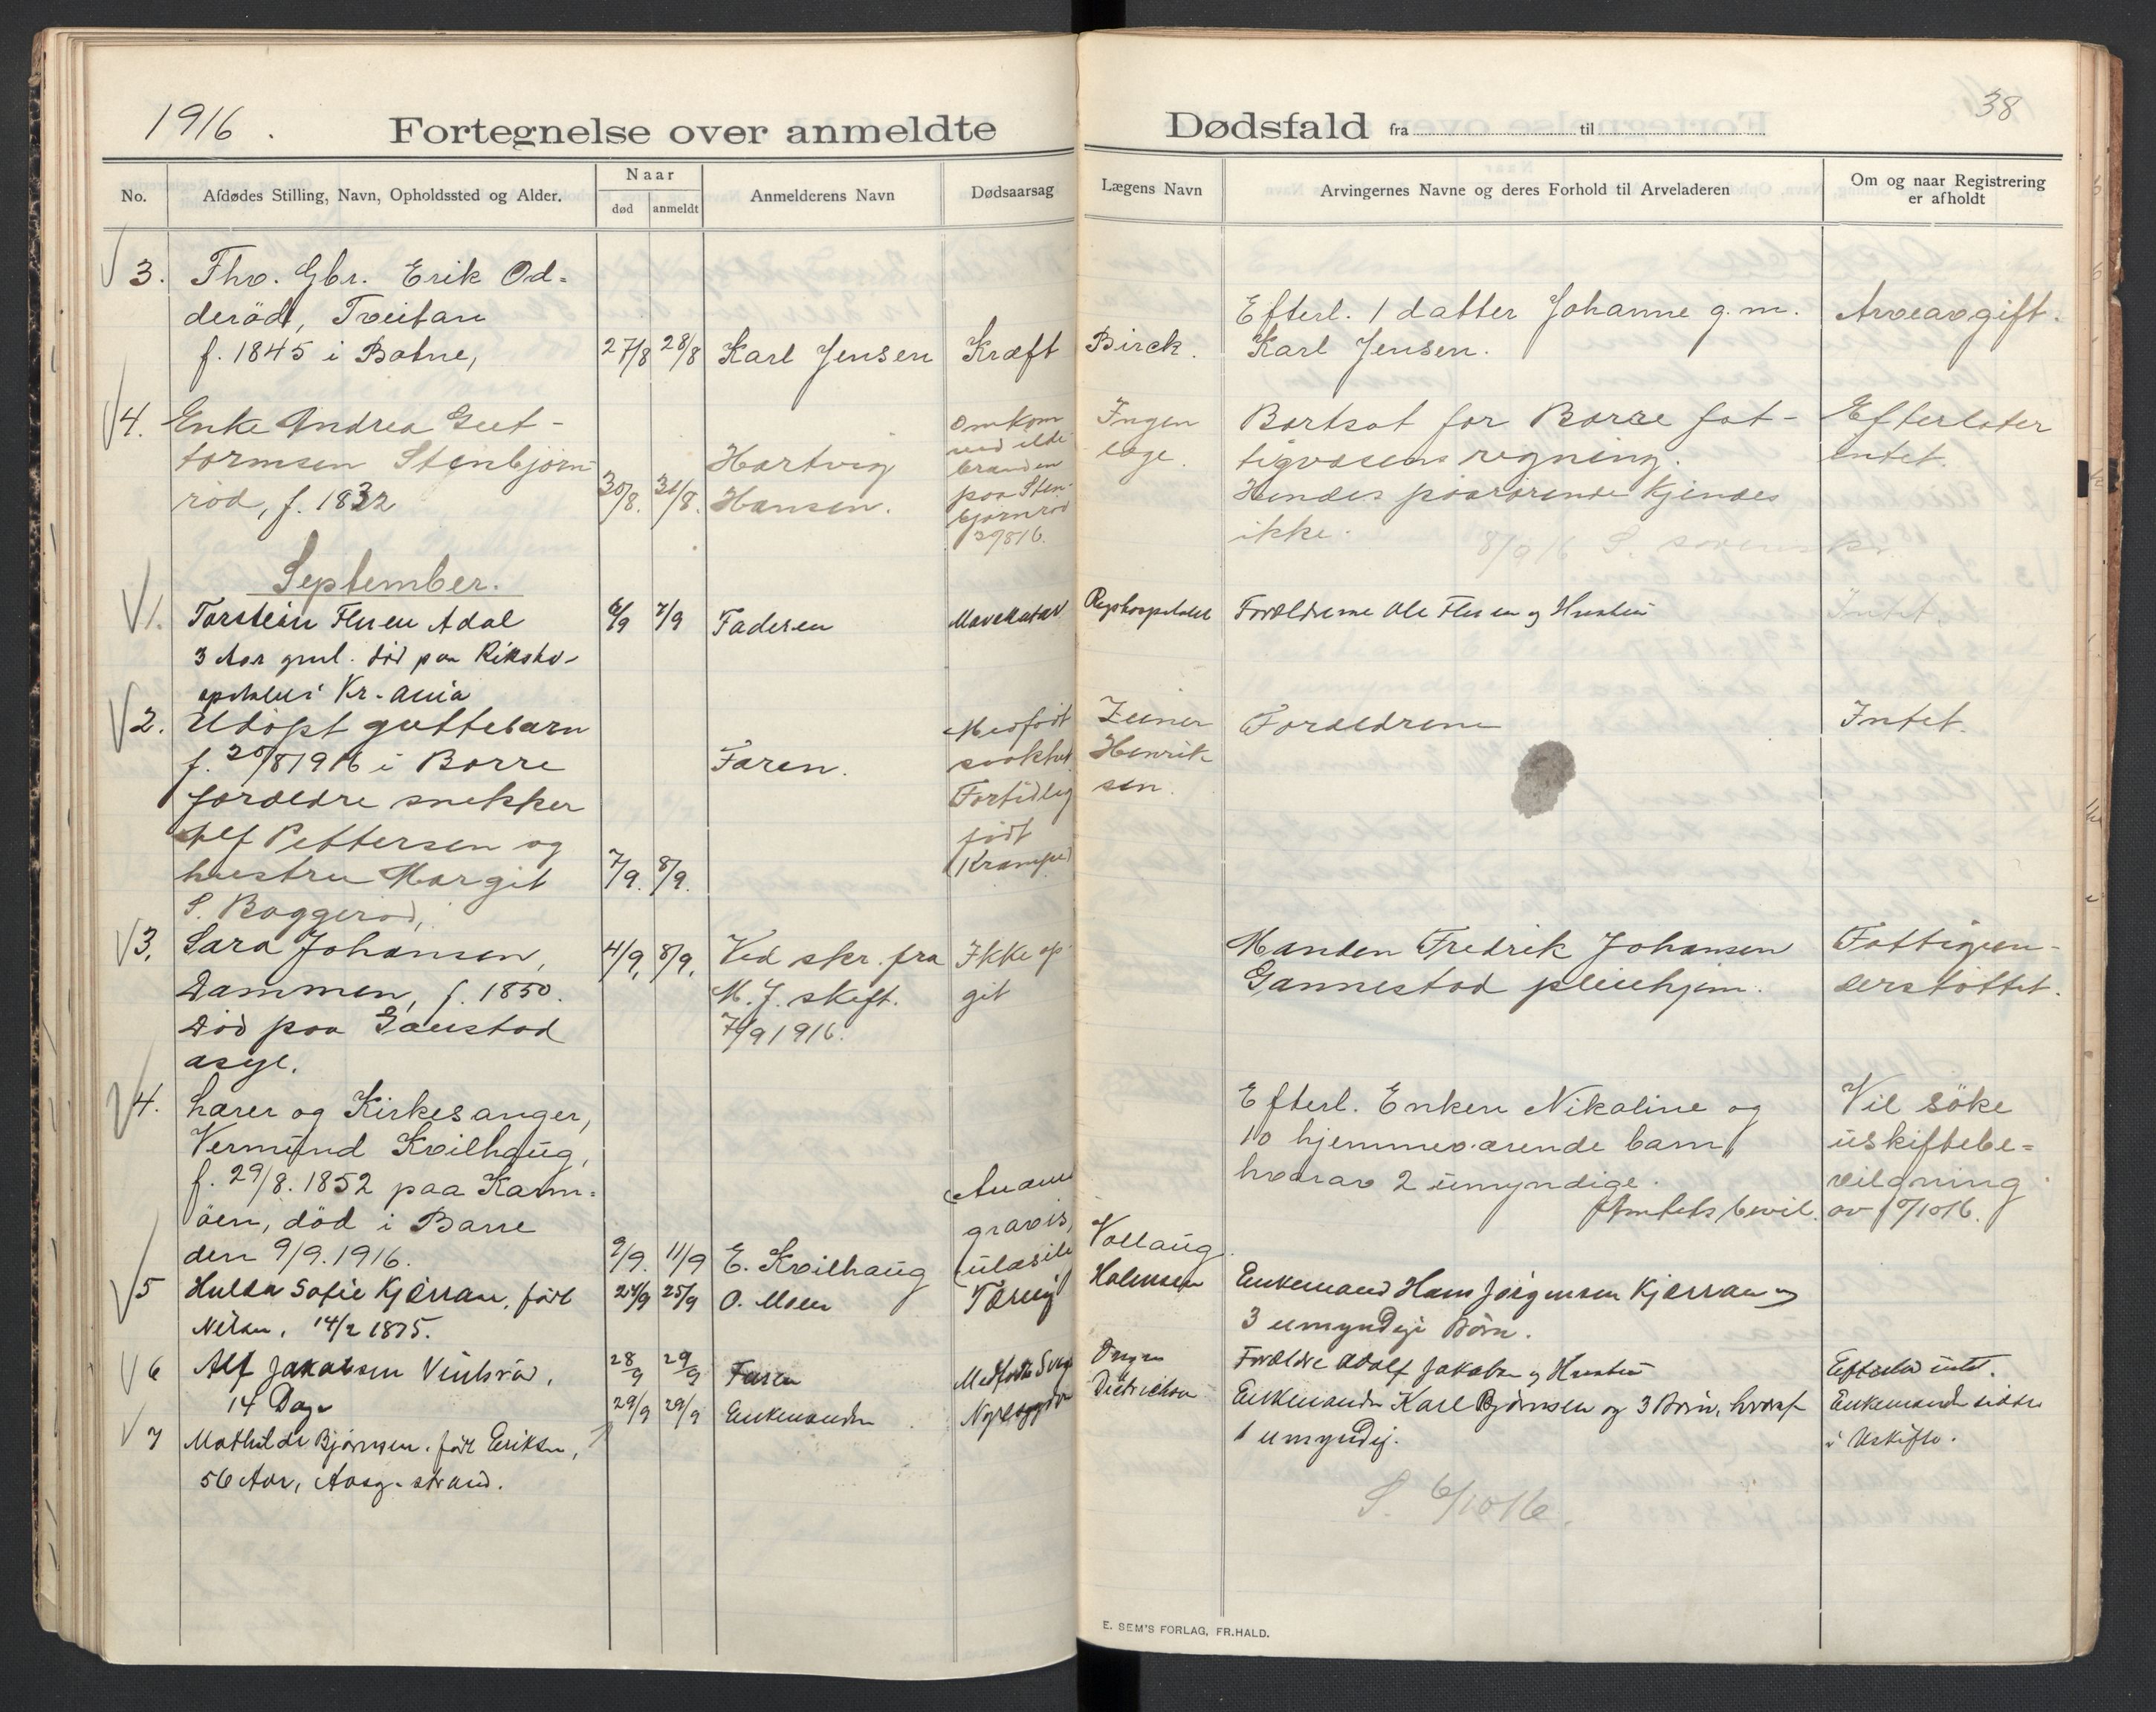 1916.
Fortegnelse over anmeldte
Dødsfald fra til
38
No.
Afdødes Stilling, Navn, Opholdssted og Alder.
Naar
død
anmeldt
Anmelderens Navn
Dødsaarsag
Lægens Navn
Arvingernes Navne og deres Forhold til Arveladeren
Om og naar Registrering
er afholdt
3. Fhv. Gbr. Erik Od=
deröd, Tveitan
f. 1845 i Botne,
27/8 28/8 Karl Jensen Kræft
Birck.
Efterl. 1 datter Johanne g.m.
Karl Jensen.
Arveavgift.
4. Enke Andrea Gut-
tormsen Stenbjørn
rød, f. 1832
30/8. 31/8.
Hartvig
Hansen.
Omkom
ved ilde
branden
paa Sten-
bjørnrød
29816.
Ingen
læge.
Bortsat for Borre fat-
tigvæsens regning.
Hendes paarørende kjendes
ikke.
Efterlater
intet.
8/916 S.
September.
1. Torstein Flusen Adal
3 Aar gml. død paa Riksho-
spitalet i Kr.ania
6/9 7/9 Faderen
Mavekatar
Rigshospitalet
Forældrene Ole Flusen og Hustru
Intet.
2. Udöpt guttebarn
f. 20/81916 i Borre
foreldre snekker
Alf Pettersen og
hustru Margit
S. Baggerød,
7/9. 8/9.
Faren.
Medfødt
svakhet
Fortidlig
født
(Krampe)
Zeiner
Henrik-
sen.
Foreldrene
Intet.
3. Sara Johansen,
Dammen, f. 1850.
Død paa Gaustad
asyl.
4/9, 8/9,
Ved skr. fra
M. J. skift.
7/91916.
Ikke op-
git
Manden Fredrik Johansen
Gannestad pleiehjem.
Fattigun-
derstöttet.
4. Lærer og Kirkesanger,
Vermund Kvilhaug,
f. 29/8. 1852 paa Karm=
öen, död i Borre
den 9/9.1916.
9/9. 11/9 E. Kvilhaug
gravis,
Vollaug.
Efterl. Enken Nikoline og
10 hjemmeværende barn
hvorav 2 umyndige.
Amtets bevil.
Vil söke
uskiftebe=
vilgning
av 10/1016.
5 Hulda Sofie Kjærran, født
Nilsen, 14/2 1875.
24/9 25/9 O. Moen
Tæring
Holmsen
Enkemand Hans Jörgensen Kjærran og
3 umyndige Börn.
6 Alf Jakobsen Vinlsröd,
14 Dage
28/9 29/9 Faren
Medfödt Svagh
Ingen
Forældre Adolf Jakobsen og Hustru
Efterlod intet.
7 Mathilde Björnsen, født Eriksen,
56 Aar, Aasg.strand.
29/9 29/9 Enkemanden
Nyresygdom
Dietrichson
Enkemanden Karl Björnsen og 3 Börn, hvoraf
1 umyndig.
Enkemanden sidder
i Uskifte.
S. 6/1016.
E. SEM'S FORLAG, FR.HALD.